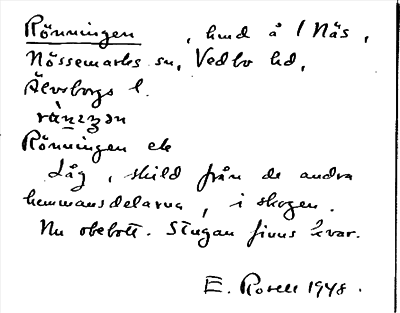 Rönningen, hmd å 1 Näs,
Nössemarks sn, Vedbo hd,
Älvsborgs l.
Rönningen ek
Låg, skild från de andra
hemmansdelarna, i skogen.
Nu obebott. Stugan finns kvar.
E. Rosell 1948.